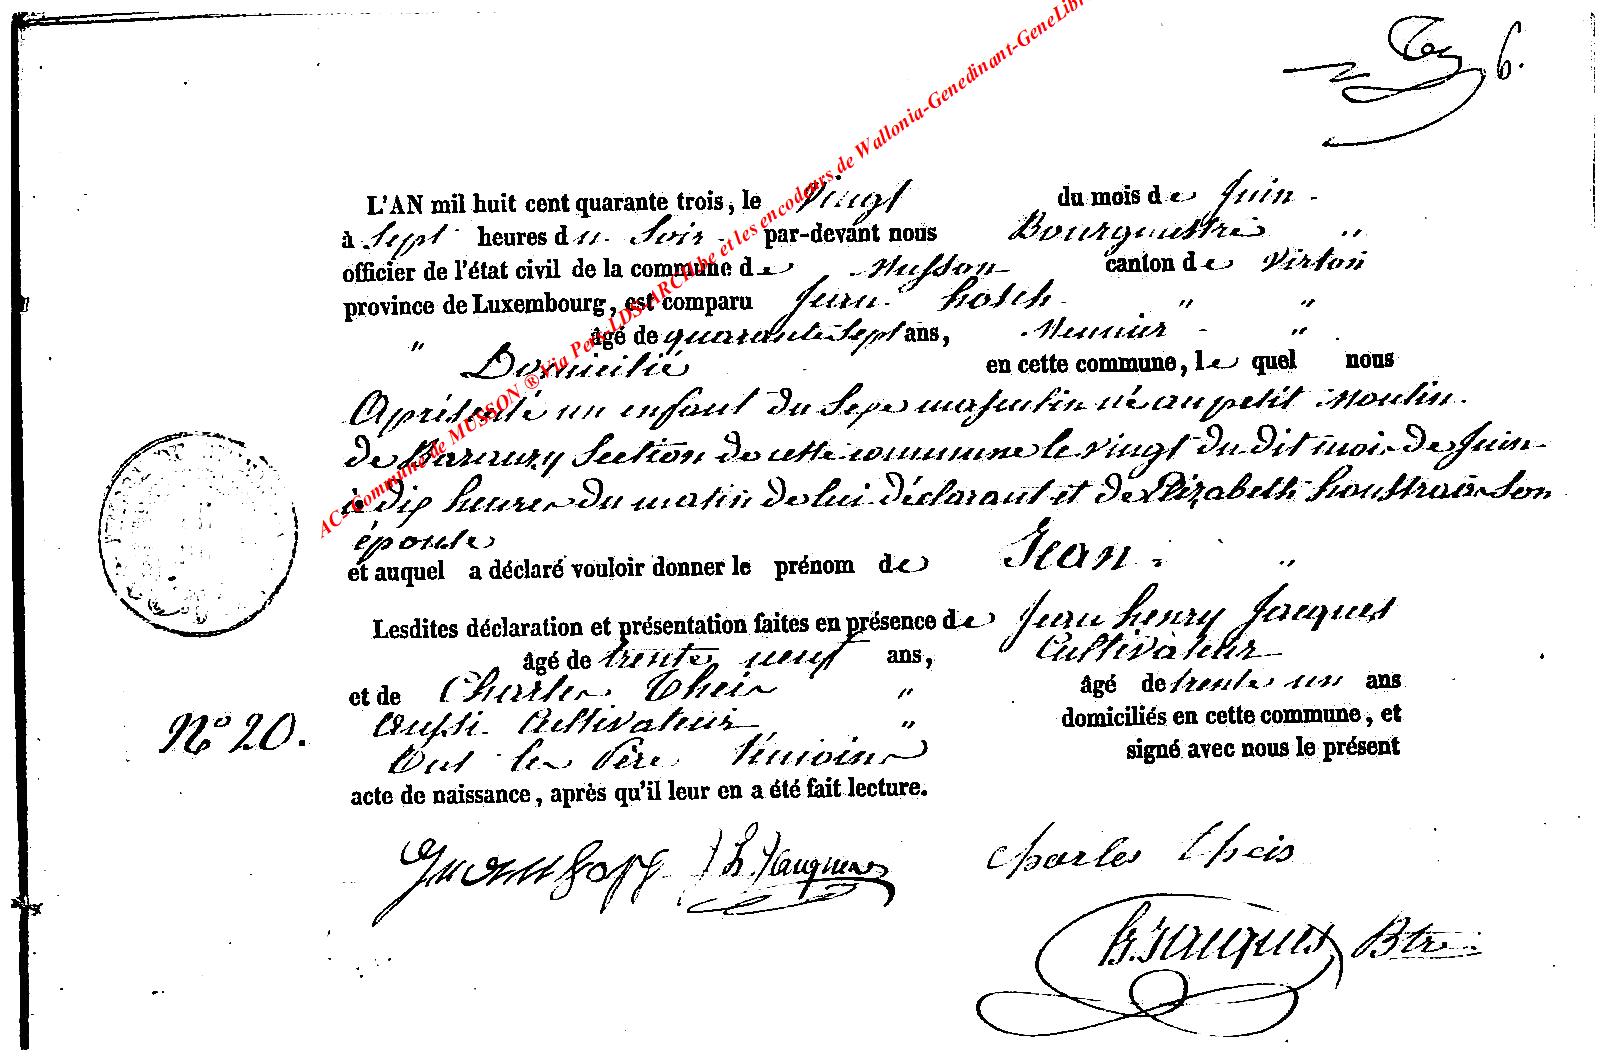 6.
L'AN mil huit cent quarante trois, le Vingt du mois de Juin
à Sept heures du Soir par-devant nous Bourgmestre "
officier de l'état civil de la commune de Musson canton de Virton
province de Luxembourg, est comparu Jean Hosch " "
" âgé de quarante Sept ans, Meunier "
Domicilié en cette commune, le quel nous
A présenté un enfant du Sexe masculin né au petit Moulin
de Baranzy Section de cette commune le vingt du dit mois de Juin
à dix heures du matin de lui déclarant et de Elizabeth Son
épouse
et auquel a déclaré vouloir donner le prénom de Jean "
Lesdites déclaration et présentation faites en présence de Jean henry Jacques
âgé de trente neuf ans, Cultivateur
et de Charles Theis " âgé de trente un ans
Aussi Cultivateur " domiciliés en cette commune, et
Ont les Père témoins signé avec nous le présent
N° 20.
acte de naissance, après qu'il leur en a été fait lecture.
J h Jacques Charles Theis
Jacques Btre
AC-Commune de MUSSON ® Via Perle LDS-ARCH.be et les encodeurs de Wallonia-Genedinant-GeneLibr